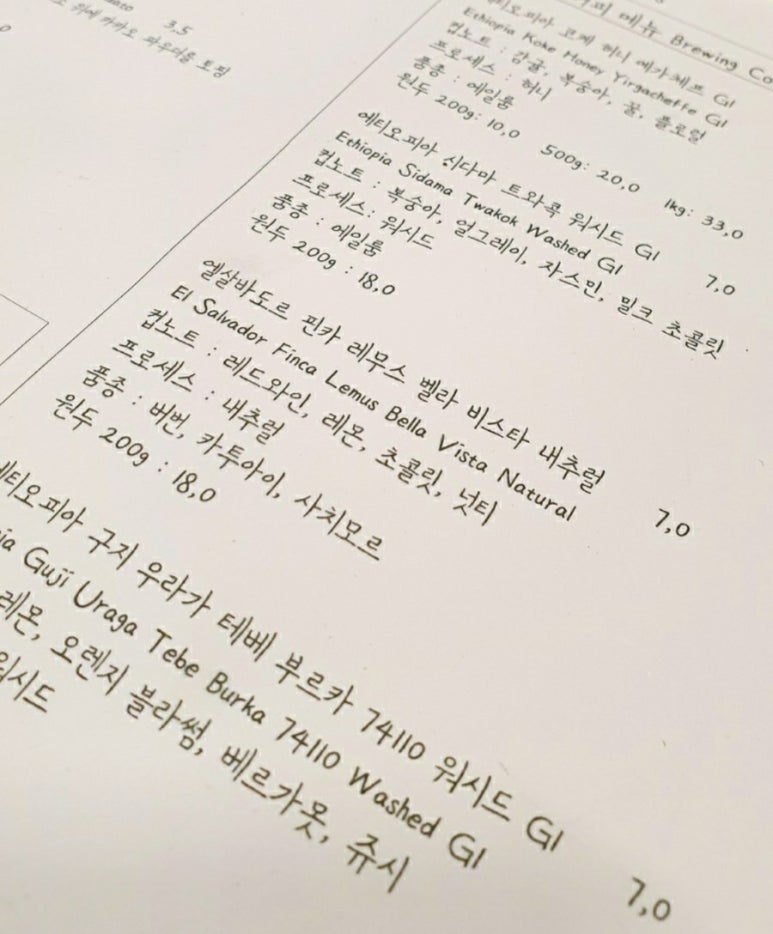 3.5
위에 카카오 파우더를 토핑
메뉴 Brewing Co
에티오피아 코케 허니 예가체프 G1
Ethiopia Koke Honey Yirgacheffe G1
컵노트 : 감귤, 복숭아, 꿀, 플로럴
프로세스 : 허니
품종 : 에일룸
원두 200g: 10,0 500g: 20,0 1kg: 33,0
에티오피아 시다마 트와콕 워시드 G1
Ethiopia Sidama Twakok Washed G1 7,0
컵노트 : 복숭아, 얼그레이, 자스민, 밀크 초콜릿
프로세스: 워시드
품종 : 에일룸
원두 200g : 18,0
엘살바도르 핀카 레무스 벨라 비스타 내추럴
El Salvador Finca Lemus Bella Vista Natural 7,0
컵노트 : 레드와인, 레몬, 초콜릿, 넛티
프로세스 : 내추럴
품종 : 버번, 카투아이, 사치모르
원두 200g : 18,0
에티오피아 구지 우라가 테베 부르카 74110 워시드 G1
ia Guji Uraga Tebe Burka 74110 Washed G1 7,0
레몬, 오렌지 블라썸, 베르가못, 쥬시
워시드